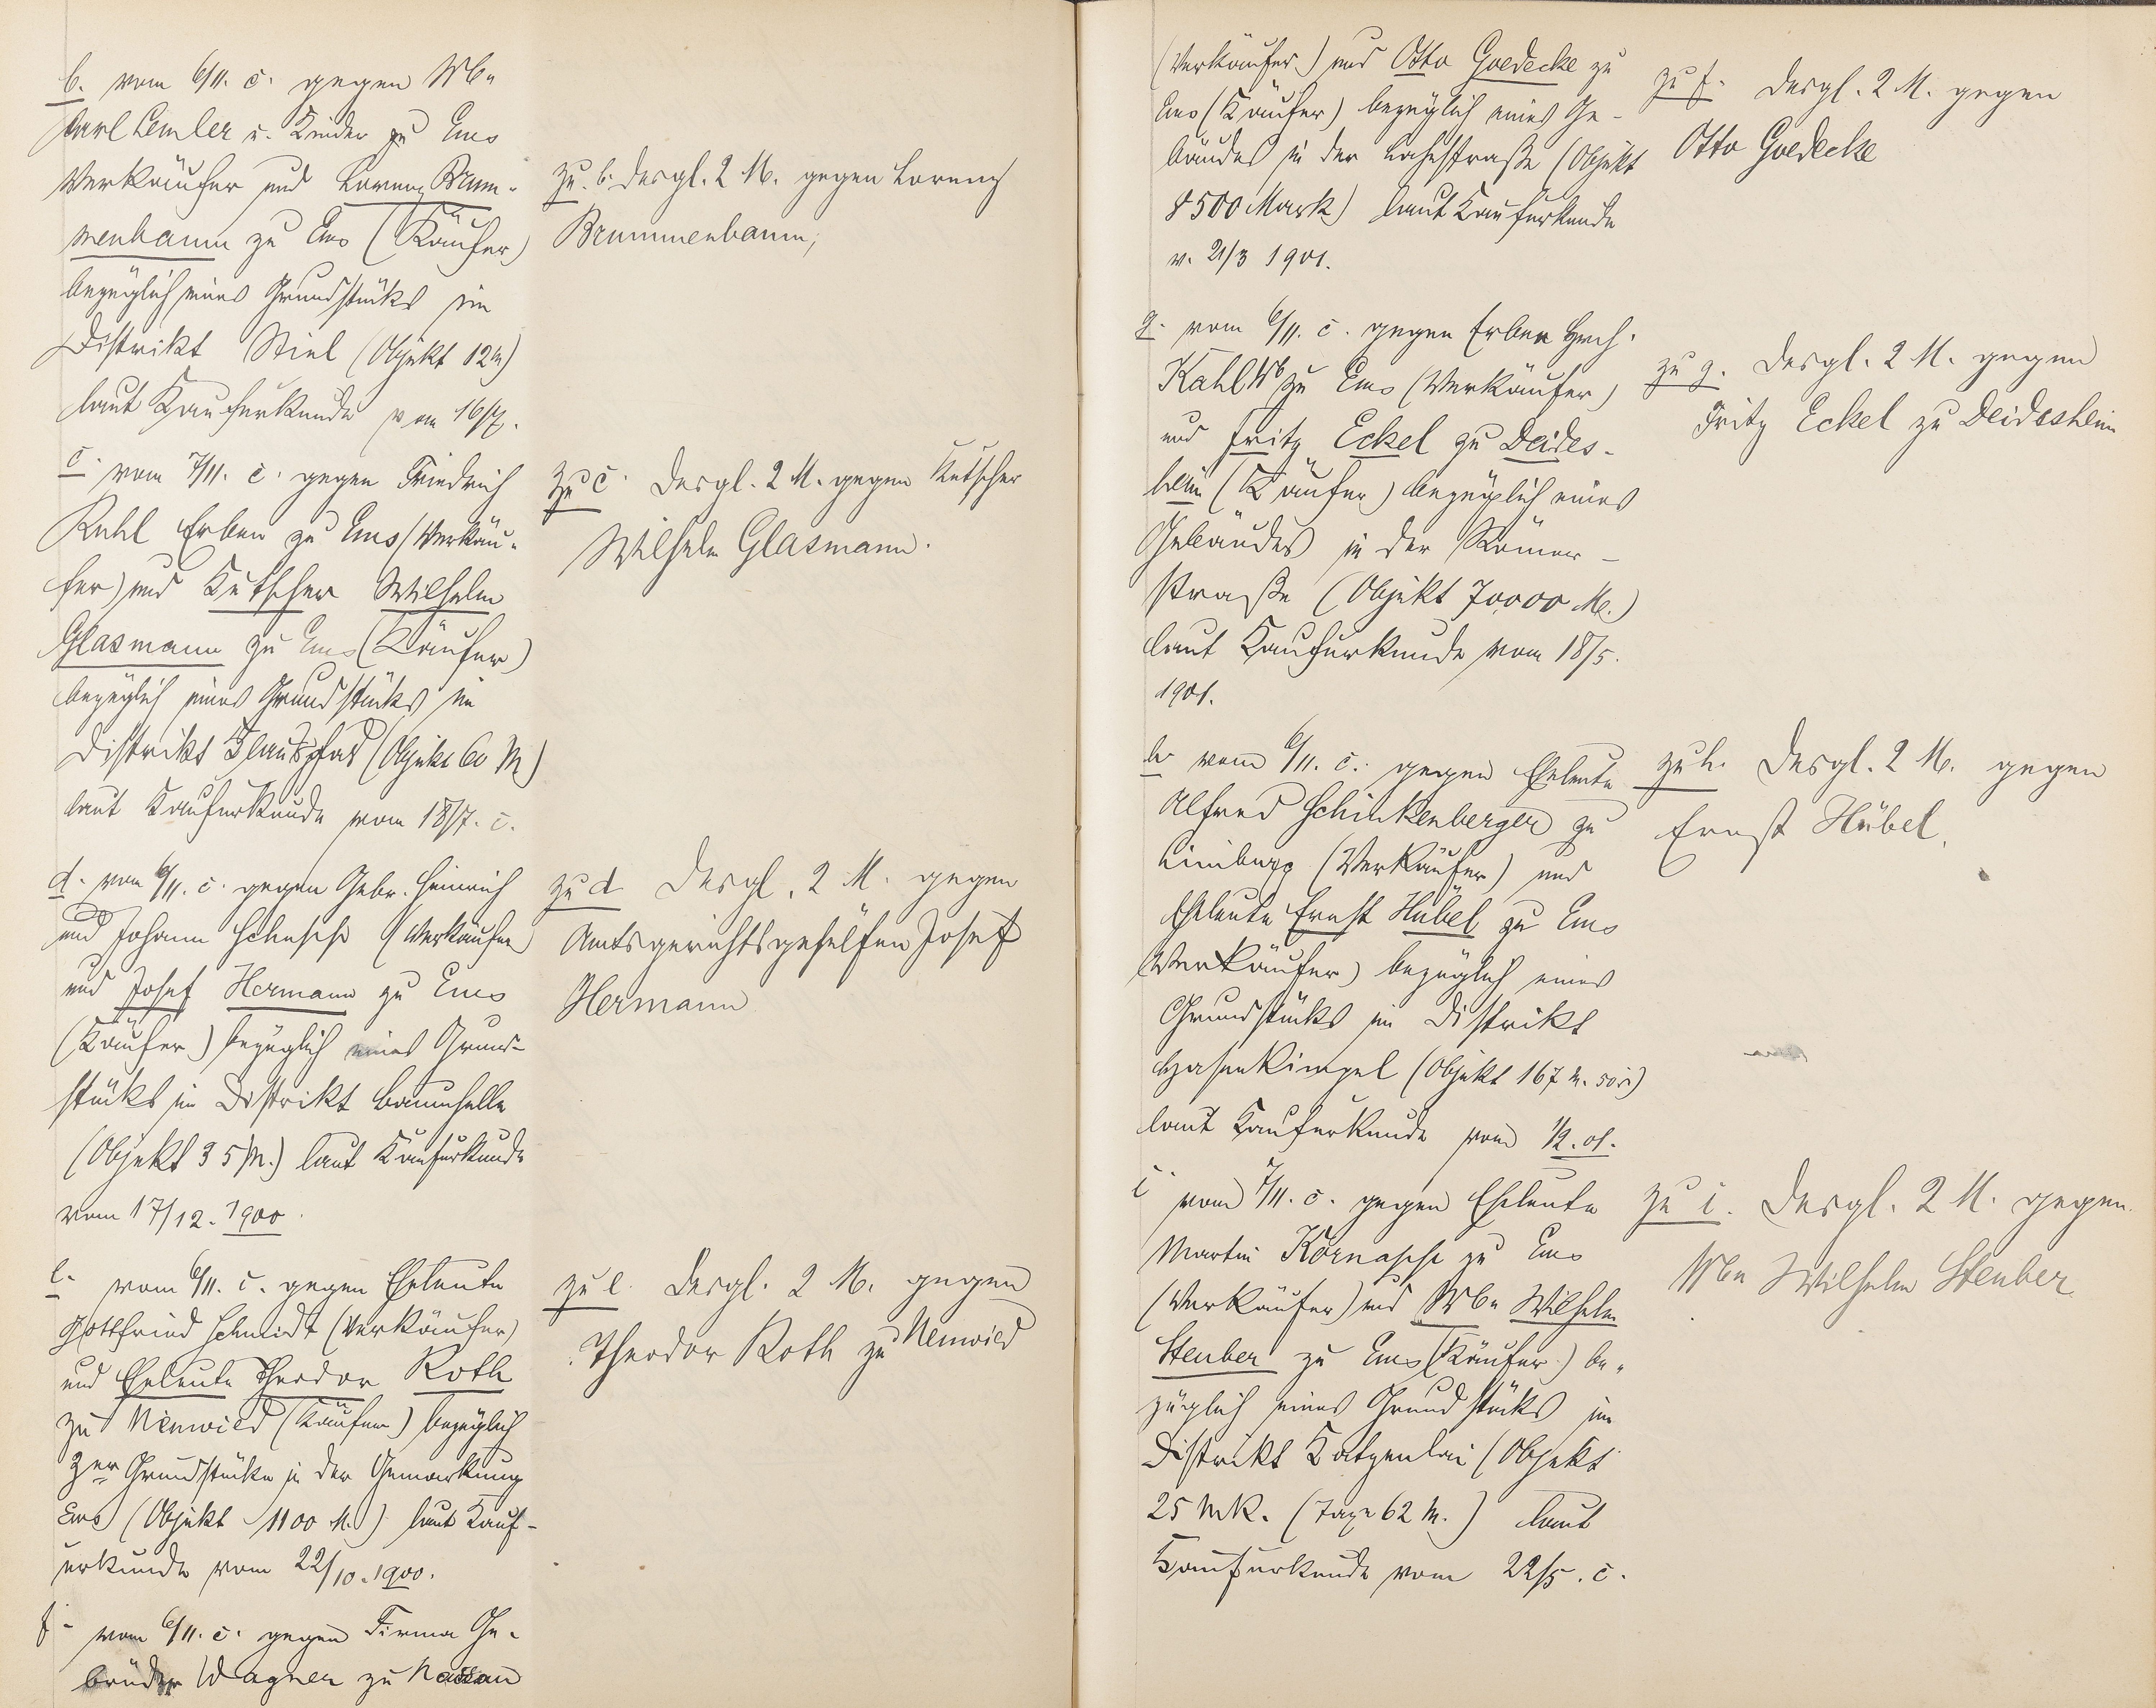 b. vom 6/11. c. gegen Wbe
Karl Lemler u. Kinder zu Ems
Verkäufer und Lorenz Brum-
menbaum zu Ems (Käufer)
bezüglich eines Grundstücks im
Distrikt (Objekt 12 M)
laut Kaufurkunde vom 16/7.
c. vom 7/11. c. gegen Friedrich
Ruhl Erben zu Ems (Verkäu-
fer) und Kutscher Wilhelm
Glasmann zu Ems (Käufer)
bezüglich eines Grundstücks im
Distrikt (Objekt 60 M)
laut Kaufurkunde vom 18/7. c.
d. vom 6/11. c. gegen Gebr. Heinrich
und Johann (Verkäufer)
und Josef Hermann zu Ems
(Käufer) bezüglich eines Grund-
stücks im Distrikt Baumhelle
(Objekt 35 M.) laut Kaufurkunde
vom 17/12. 1900.
e. vom 6/11. c. gegen Eheleute
Gottfried Schmidt (Verkäufer)
und Eheleute Theodor Roth
zu Neuwied (Käufer) bezüglich
2er Grundstücke in der Gemarkung
Ems (Objekt 1100 M.) laut Kauf-
urkunde vom 22/10. 1900.
f. vom 6/11. c. gegen Firma Ge-
brüder Wagner zu Nassau
zu b. desgl. 2 M. gegen Lorenz
Brummenbaum;
zu c. desgl. 2 M. gegen Kutscher
Wilhelm Glasmann.
zu d desgl. 2 M. gegen
Amtsgerichtsgehülfen Josef
Hermann
zu e. desgl. 2 M. gegen
Theodor Roth zu Neuwied
(Verkäufer) und Otto Goedecke zu
Ems (Käufer) bezüglich eines Ge-
bäudes in der Lahnstraße (Objekt
8500 Mark) laut Kaufurkunde
v. 21/3 1901.
g. vom 6/11. c. gegen Erben Hrch.
Kahl Wb zu Ems (Verkäufer)
und Fritz Eckel zu Deides-
heim (Käufer) bezüglich eines
Gebäudes in der Römer-
straße (Objekt 70000 M.)
laut Kaufurkunde vom 18/5.
1901.
h. vom 6/11. c. gegen Eheleute
Alfred Schinkenberger zu
Limburg (Verkäufer) und
Eheleute Ernst Hübel zu Ems
Verkäufer) bezüglich eines
Grundstücks im Distrikt
Hasenkimpel (Objekt 167 M. 50 )
laut Kaufurkunde vom 1/2. 01.
i vom 7/11. c. gegen Eheleute
Martin Kornasche zu Ems
(Verkäufer) und Wbe Wilhelm
Steuber zu Ems (Käufer) be-
züglich eines Grundstücks im
Distrikt Katzenlai (Objekt
25 MK. (Taxe 62 M.) laut
Kaufurkunde vom 22/5. c.
zu f. desgl. 2 M. gegen
Otto Goedecke
zu g. desgl. 2 M. gegen
Fritz Eckel zu Deidesheim
zu h. desgl. 2 M. gegen
Ernst Hübel.
zu i. desgl. 2 M. gegen
Wbe Wilhelm Steuber